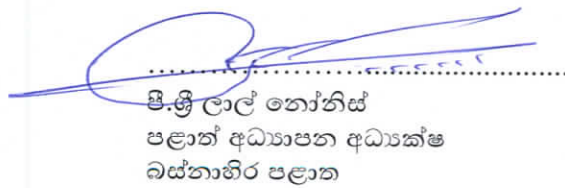 පී.ශ්‍රී ලාල් නෝනිස්
පළාත් අධ්‍යාපන අධ්‍යක්ෂ
බස්නාහිර පළාත